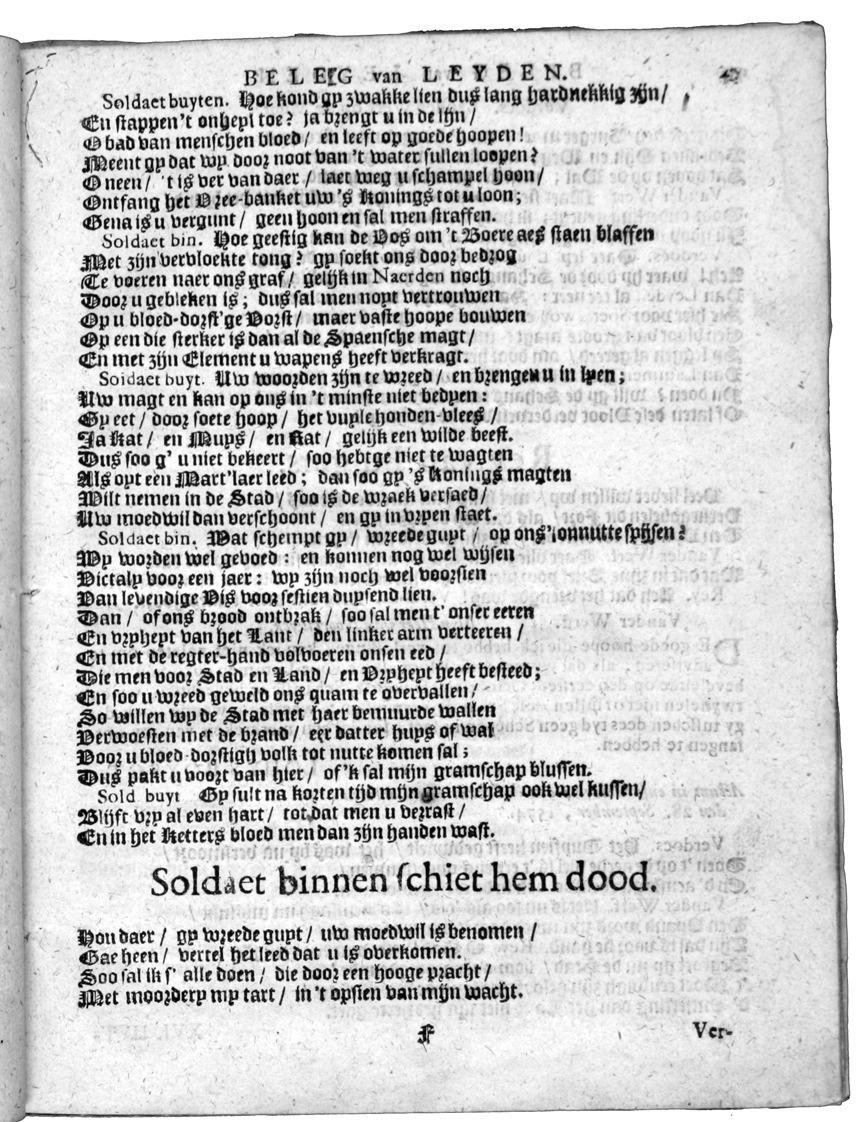 BELEG van LEYDEN.
Soldaet buyten. Hoe kond gy zwakke lien dus lang hardnekkig zijn/
En stappen 't onheyl toe? ja brengt u in de lijn/
O bad van menschen bloed/ en leeft op goede hoopen!
Meent gy dat wy door noot van 't water sullen loopen?
O neen/ 't is ver van daer/ laet weg u schampel hoon/
Ontfang het Vree-banket uw 's Konings tot u loon;
Gena is u vergunt/ geen hoon en sal men straffen.
Soldaet bin. Hoe geestig kan de Vos om 't Boere aes staen blaffen
Met zijn vervloekte tong? gy soekt ons door bedrog
Te voeren naer ons graf/ gelijk in Naerden noch
Door u gebleken is; dus sal men noyt vertrouwen
Op u bloed-dorst'ge Vorst/ maer vaste hoope bouwen
Op een die sterker is dan al de Spaensche magt/
En met zijn Element u wapens heeft verkragt.
Soldaet buyt. Uw woorden zijn te wreed/ en brengen u in lyen;
Uw magt en kan op ons in 't minste niet bedyen:
Gy eet/ door soete hoop/ het vuyle honden-vlees/
Ja Kat/ en Muys/ en Rat/ gelijk een wilde beest.
Dus soo g' u niet bekeert/ soo hebtge niet te wagten
Als oyt een Mart'laer leed; dan soo gy 's Konings magten
Wilt nemen in de Stad/ soo is de wraek versaed/
Uw moedwil dan verschoont/ en gy in vryen staet.
Soldaet bin. Wat schempt gy/ wreede guyt/ op ons' onnutte spijsen?
Wy worden wel gevoed: en konnen nog wel wijsen
Victaly voor een jaer: wy zijn noch wel voorsien
Van levendige Vis voor sestien duysend lien.
Dan/ of ons brood ontbrak/ soo sal men t' onser eeren
En vryheyt van het Lant/ den linker arm verteeren/
En met de regter-hand volvoeren onsen eed/
Die men voor Stad en Land/ en Vryheyt heeft besteed;
En soo u wreed geweld ons quam te overvallen/
So willen wy de Stad met haer bemuurde wallen
Verwoesten met de brand/ eer datter huys of wal
Voor u bloed-dorstigh volk tot nutte komen sal;
Dus pakt u voort van hier/ of 'k sal mijn gramschap blussen.
Sold buyt Gy sult na korten tijd mijn gramschap ook wel kussen/
Blijft vry al even hart/ tot dat men u verrast/
En in het Ketters bloed men dan zijn handen wast.
Soldaet binnen schiet hem dood.
Hou daer/ gy wreede guyt/ uw moedwil is benomen/
Gae heen/ vertel het leed dat u is overkomen.
Soo sal ik s' alle doen/ die door een hooge pracht/
Met moordery my tart/ in 't opsien van mijn wacht.
F Ver-